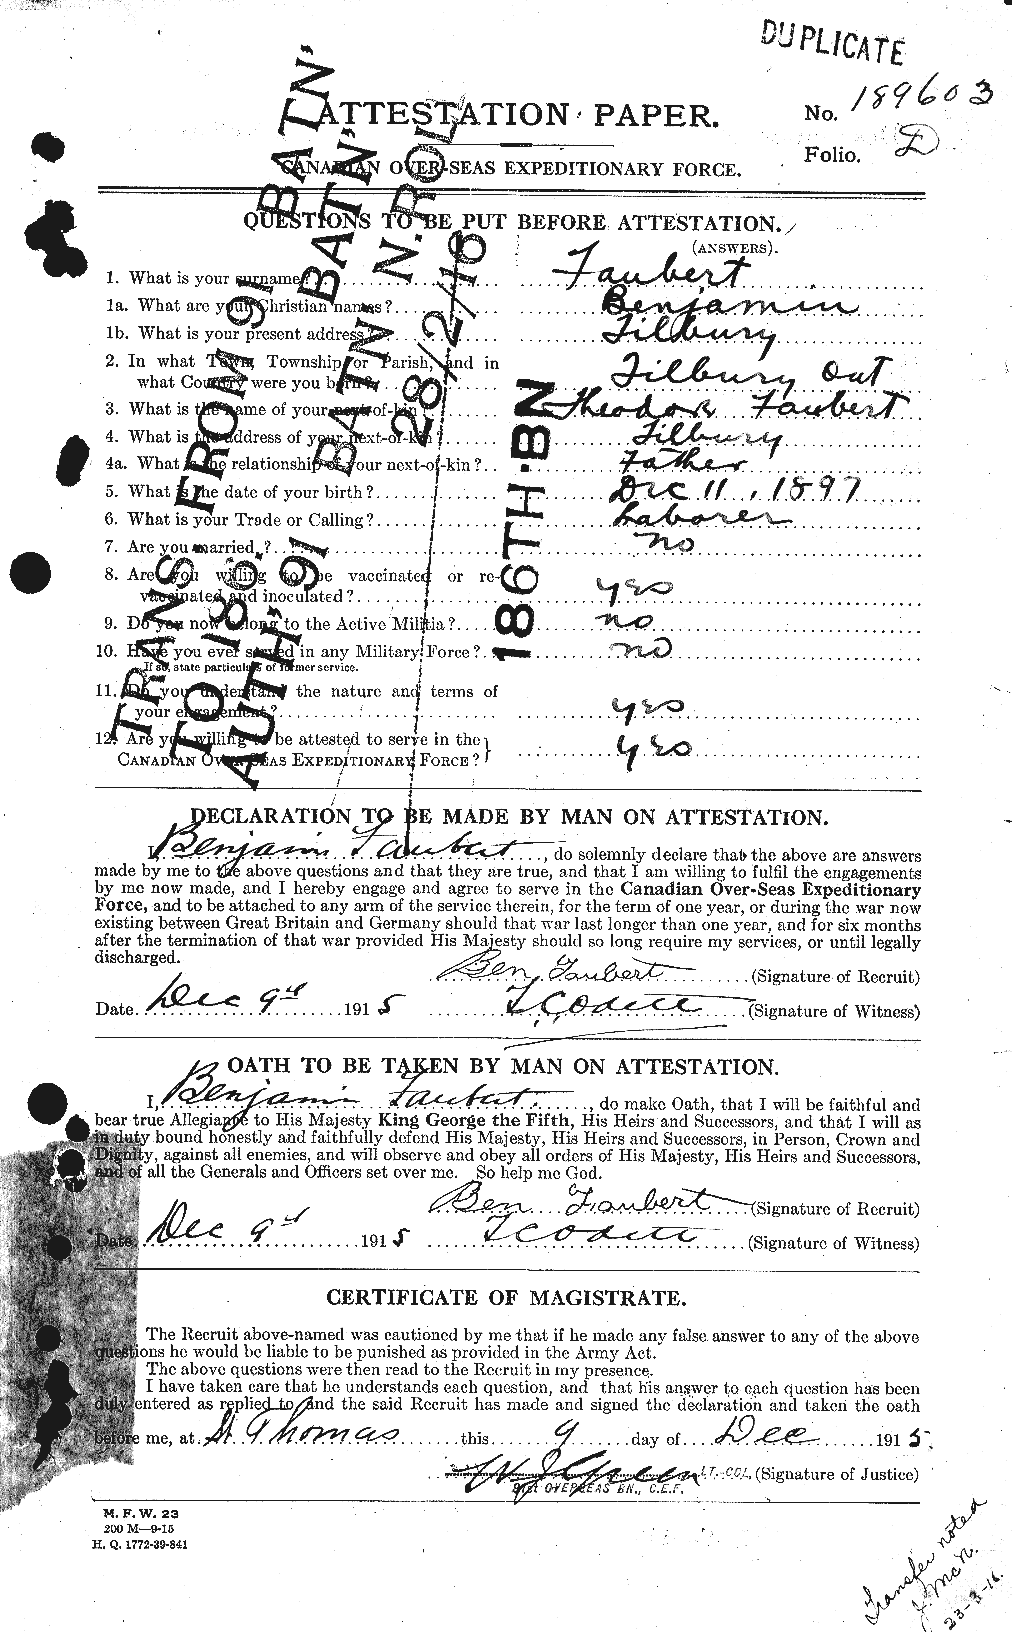 DUPLICATE
ATTESTATION PAPER.
No. 189603
Folio. D
CANADIAN OVER-SEAS EXPEDITIONARY FORCE.
QUESTIONS TO BE PUT BEFORE ATTESTATION.
(ANSWERS).
1. What is your surname? Faubert
1a. What are your Christian names? Benjamin
1b. What is your present address? Tilbury
2. In what Town, Township or Parish, and in
what Country were you born? Tilbury Out
3. What is the name of your next-of-kin? Theodore Faubert
4. What is the address of your next-of-kin? Tilbury
4a. What is the relationship of your next-of-kin? Father
5. What is the date of your birth? Dec 11, 1897
6. What is your Trade or Calling? Laborer
7. Are you married? No
8. Are you willing to be vaccinated or re-
vaccinated and inoculated? yes
9. Do you now belong to the Active Militia? no
10. Have you ever served in any Military Force? no
If so, state particulars of former service.
11. Do you understand the nature and terms of
your engagement? yes
12. Are you willing to be attested to serve in the
CANADIAN OVER-SEAS EXPEDITIONARY FORCE? yes
TRANS FROM 91 BATN'
TO 186. BATN'
AUTH' 91 BATN N. ROL
28/2/16
186TH. BN
DECLARATION TO BE MADE BY MAN ON ATTESTATION.
I, Benjamin Faubert, do solemnly declare that the above are answers
made by me to the above questions and that they are true, and that I am willing to fulfil the engagements
by me now made, and I hereby engage and agree to serve in the Canadian Over-Seas Expeditionary
Force, and to be attached to any arm of the service therein, for the term of one year, or during the war now
existing between Great Britain and Germany should that war last longer than one year, and for six months
after the termination of that war provided His Majesty should so long require my services, or until legally
discharged.
Ben Faubert (Signature of Recruit)
Date. Dec 9th 1915 (Signature of Witness)
OATH TO BE TAKEN BY MAN ON ATTESTATION.
I, Benjamin Faubert, do make Oath, that I will be faithful and
bear true Allegiance to His Majesty King George the Fifth, His Heirs and Successors, and that I will as
in duty bound honestly and faithfully defend His Majesty, His Heirs and Successors, in Person, Crown and
Dignity, against all enemies, and will observe and obey all orders of His Majesty, His Heirs and Successors,
and of all the Generals and Officers set over me. So help me God.
Ben Faubert (Signature of Recruit)
Date. Dec 9th 1915 (Signature of Witness)
CERTIFICATE OF MAGISTRATE.
The Recruit above-named was cautioned by me that if he made any false answer to any of the above
questions he would be liable to be punished as provided in the Army Act.
The above questions were then read to the Recruit in my presence.
I have taken care that he understands each question, and that his answer to each question has been
duly entered as replied to, and the said Recruit has made and signed the declaration and taken the oath
before me, at St Thomas this 9 day of Dec 1915.
W J Green LT. COL. (Signature of Justice)
91ST OVERSEAS BN., C.E.F.
M. F. W. 23
200 M—9-15
H. Q. 1772-39-841
Transfer noted
J. McN.
23-3-16.